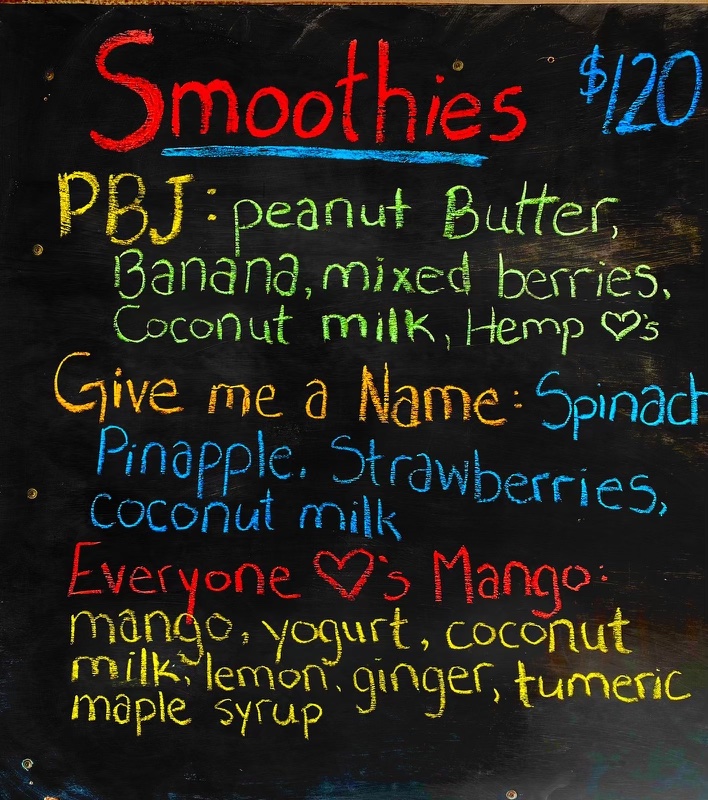 Smoothies $120
PBJ: peanut Butter,
Banana, mixed berries,
Coconut milk, Hemp ♡'s
Give me a Name: Spinach
Pinapple. Strawberries,
coconut milk
Everyone ♡'s Mango:
mango, yogurt, coconut
milk, lemon. ginger, tumeric
maple syrup